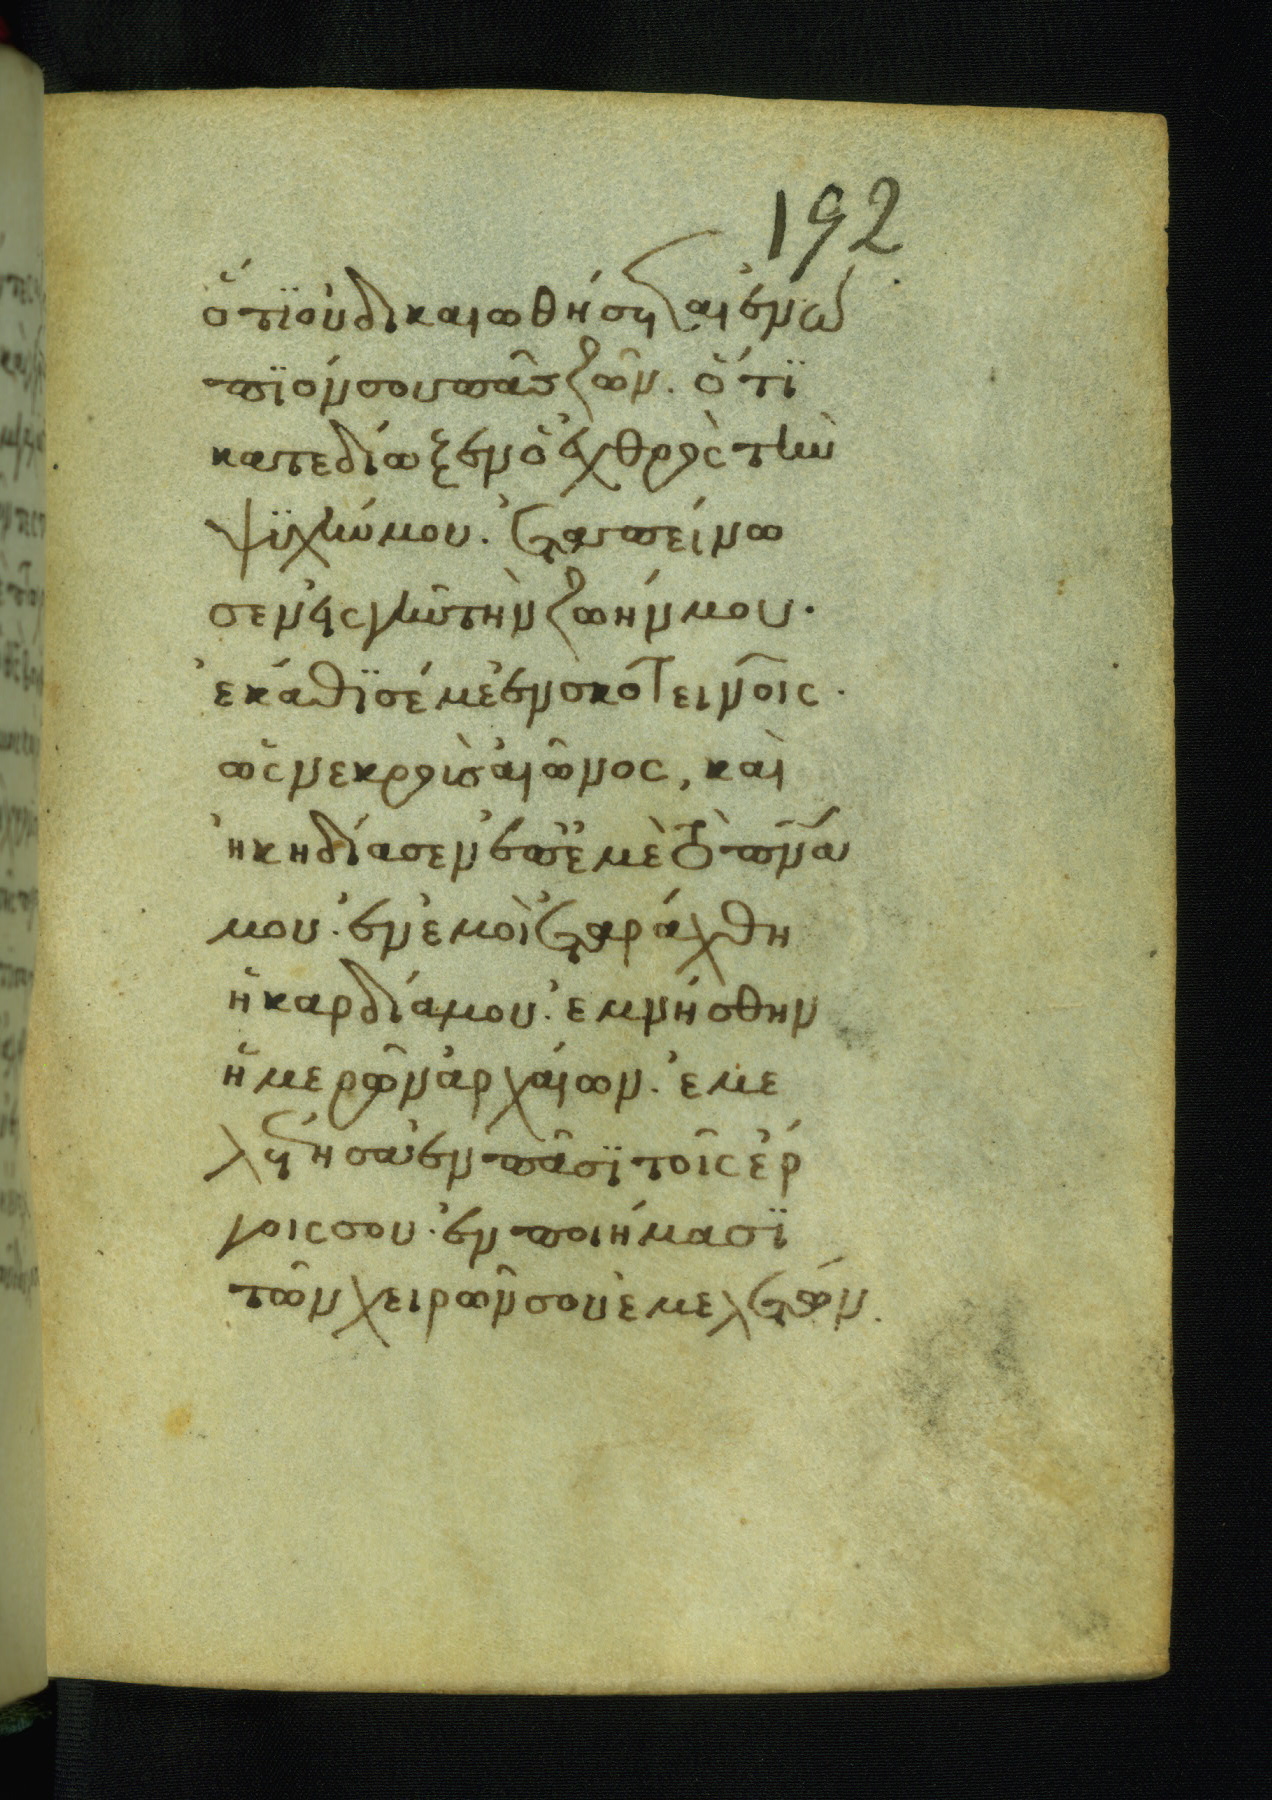 192
ὅτϊ οὐ δικαιωθήσεται ἐνώ
πϊόν σου πᾶς ζῶν. ὅτϊ
κατεδίωξεν ὁ ἐχθρὸς τὴν
ψϋχήν μου. ἐταπείνω
σεν εἰς γῆν τὴν ζωήν μου.
ἐκάθϊσέ με ἐν σκοτεινοῖς.
ὡς νεκροὺς αἰῶνος, καὶ
ἠκηδίασεν ἐπ' ἐμὲ τὸ πνᾶ
μου. ἐν ἐμοὶ ἐταράχθη
ἡ καρδία μου. ἐμνήσθην
ἡμερῶν ἀρχαίων. ἐμε
λέτησα ἐν πᾶσϊ τοῖς ἔρ
γοις σου. ἐν ποιήμασϊ
τῶν χειρῶν σου ἐμελέτων.